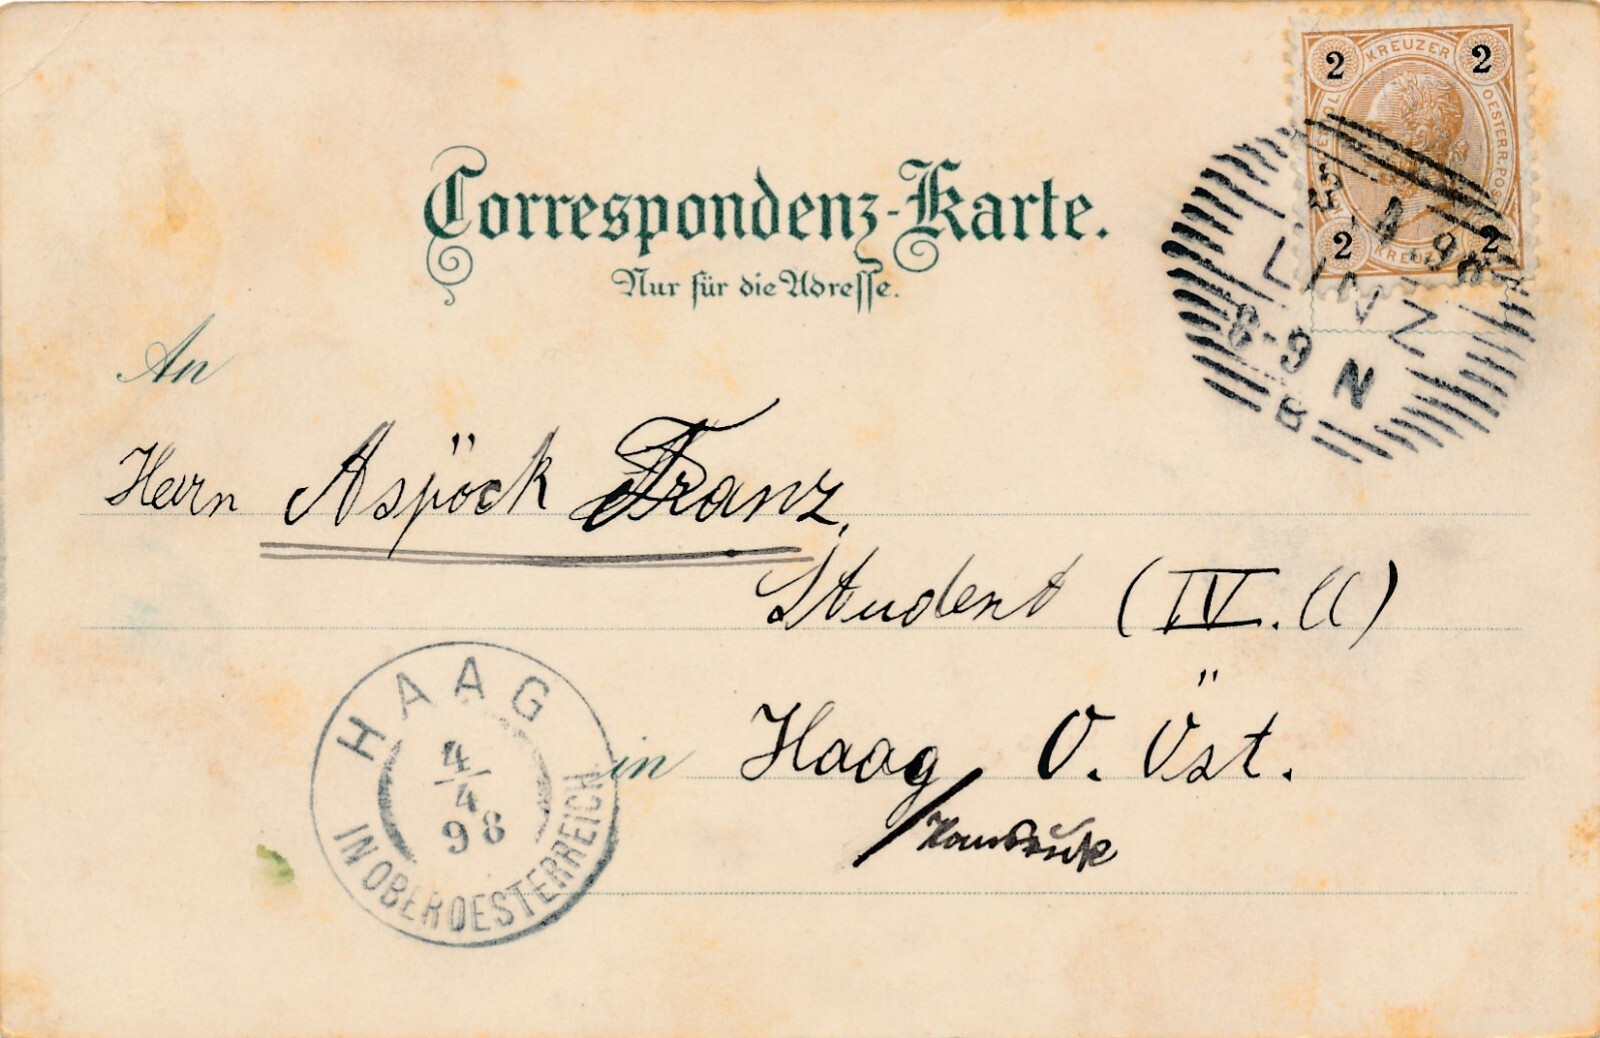 2 KREUZER 2
OESTERR. POST
2 KREUZER 2
3. 4. 98
LINZ
8-9 N
B
Correspondenz-Karte.
Nur für die Adresse.
An
Herrn Aspöck Franz,
Student (IV. Cl)
in Haag O. Öst.
HAAG
4/4
98
IN OBEROESTERREICH